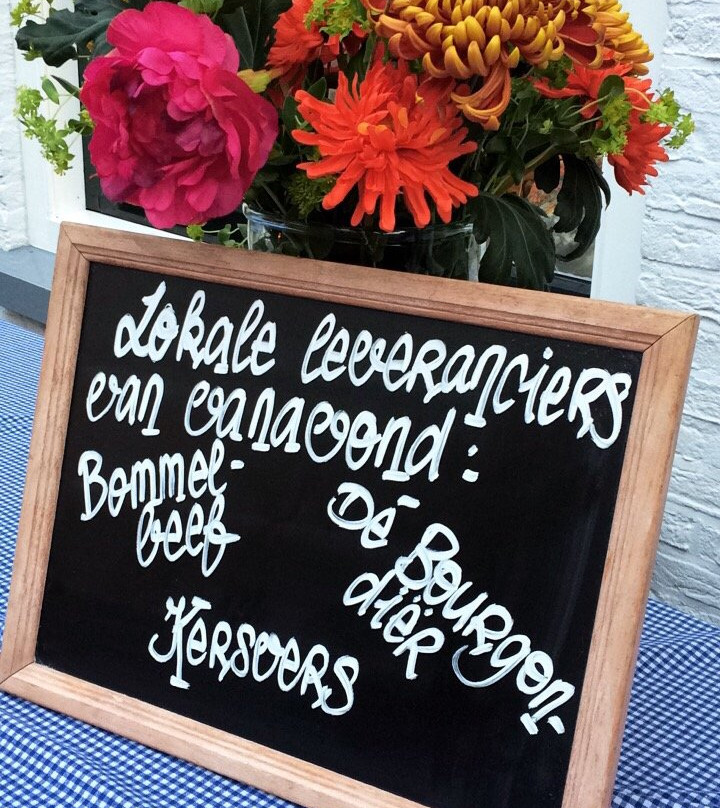 Lokale leveranciers
van vanavond:
Bommel-
beef
Dé Bourgon-
diër
Kersvers